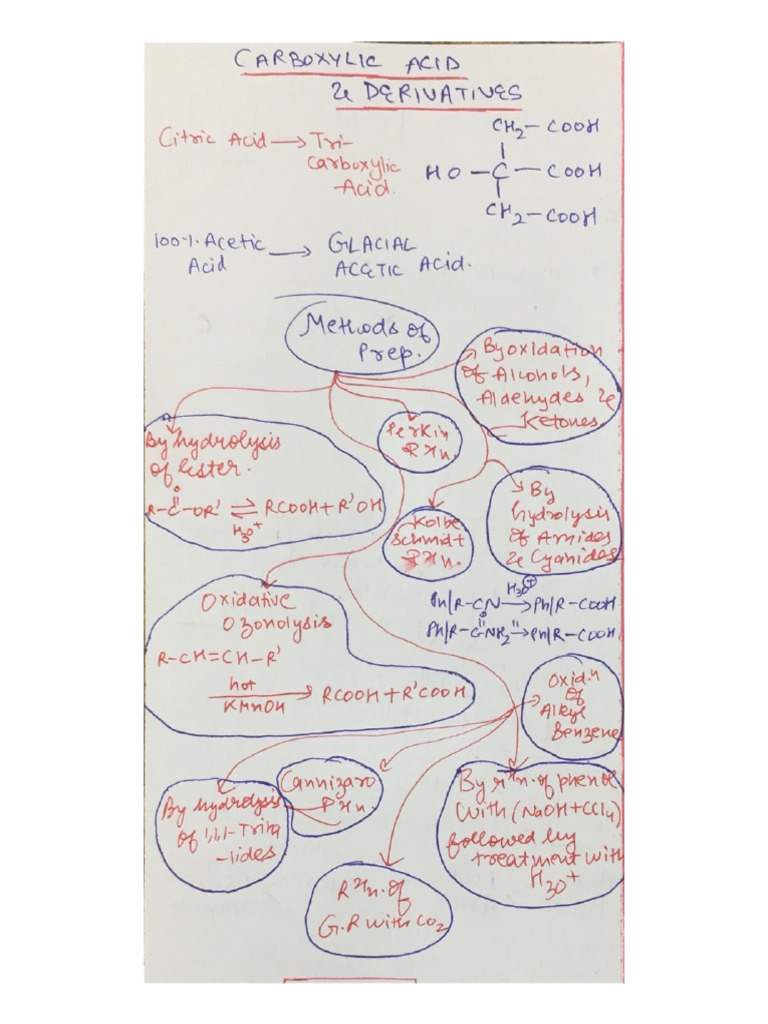 CARBOXYLIC ACID
& DERIVATIVES
Citric Acid → Tri-
carboxylic
Acid.
CH2 – COOH
HO – C – COOH
CH2 – COOH
100% Acetic
Acid
→ GLACIAL
ACETIC Acid.
Methods of
Prep.
By oxidation
of Alcohols,
Aldehydes &
Ketones
Perkin
RXn.
By hydrolysis
of Ester.
O
R–C–OR' ⇌ RCOOH + R'OH
H3O+
Kolbe
schmidt
RXn.
By
hydrolysis
of Amides
& Cyanides
H3O+
Ph/R–CN → Ph/R–COOH
O
Ph/R–C–NH2 → Ph/R–COOH
Oxidative
Ozonolysis
R–CH=CH–R'
hot
KMnOH → RCOOH + R'COOH
Oxid.n
of
Alkyl
Benzene
Cannizaro
RXn.
By hydrolysis
of 1,1,1-Triha
-lides
By rxn. of phenol
with (NaOH+CCl4)
followed by
treatment with
H3O+
RXn. of
G.R with CO2